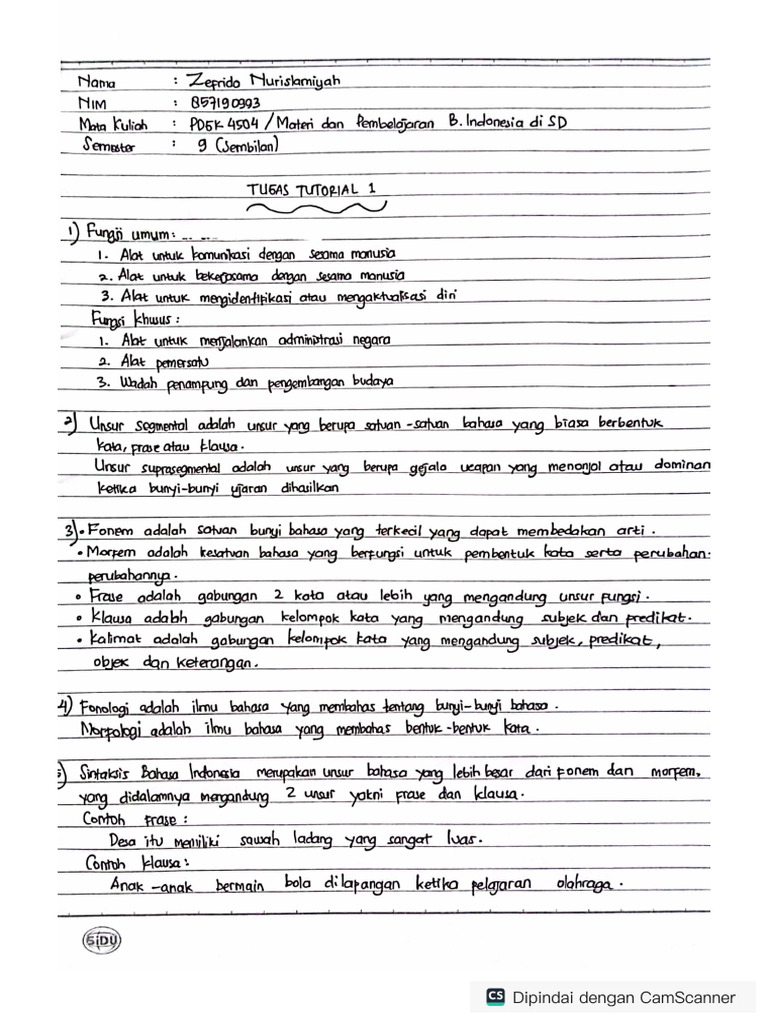 Nama : Zefrido Nurislamiyah
NIM : 857190993
Mata Kuliah : PDGK 4504 / Materi dan Pembelajaran B. Indonesia di SD
Semester : 9 (Sembilan)
TUGAS TUTORIAL 1
1) Fungsi umum : ... ...
1. Alat untuk komunikasi dengan sesama manusia
2. Alat untuk bekerjasama dengan sesama manusia
3. Alat untuk mengidentifikasi atau mengaktualisasi diri
Fungsi khusus :
1. Alat untuk menjalankan administrasi negara
2. Alat pemersatu
3. Wadah penampung dan pengembangan budaya
2) Unsur segmental adalah unsur yang berupa satuan-satuan bahasa yang biasa berbentuk
kata, frase atau klausa.
Unsur suprasegmental adalah unsur yang berupa gejala ucapan yang menonjol atau dominan
ketika bunyi-bunyi ujaran dihasilkan
3) • Fonem adalah satuan bunyi bahasa yang terkecil yang dapat membedakan arti.
• Morfem adalah kesatuan bahasa yang berfungsi untuk pembentuk kata serta perubahan-
perubahannya.
• Frase adalah gabungan 2 kata atau lebih yang mengandung unsur fungsi.
• Klausa adalah gabungan kelompok kata yang mengandung subjek dan predikat.
• Kalimat adalah gabungan kelompok kata yang mengandung subjek, predikat,
objek dan keterangan.
4) Fonologi adalah ilmu bahasa yang membahas tentang bunyi-bunyi bahasa.
Morfologi adalah ilmu bahasa yang membahas bentuk-bentuk kata.
5) Sintaksis Bahasa Indonesia merupakan unsur bahasa yang lebih besar dari fonem dan morfem,
yang didalamnya mengandung 2 unsur yakni frase dan klausa.
Contoh frase :
Desa itu memiliki sawah ladang yang sangat luas.
Contoh klausa :
Anak-anak bermain bola dilapangan ketika pelajaran olahraga.
SiDU
CS Dipindai dengan CamScanner